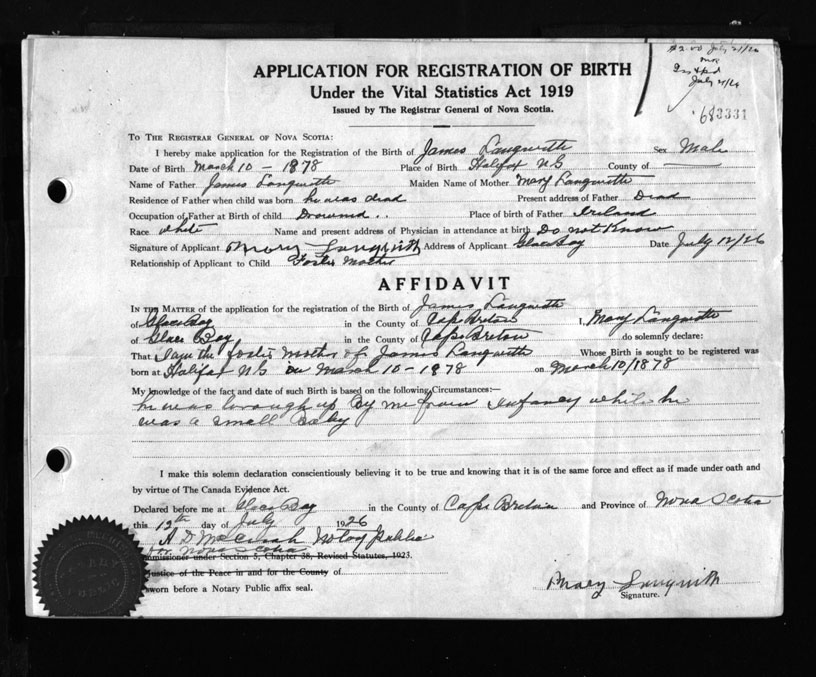 $2.00 July 21/26
July 21/26
683331
APPLICATION FOR REGISTRATION OF BIRTH
Under the Vital Statistics Act 1919
Issued by The Registrar General of Nova Scotia.
TO THE REGISTRAR GENERAL OF NOVA SCOTIA:
I hereby make application for the Registration of the Birth of James Langwith Sex Male
Date of Birth March 10 - 1878 Place of Birth Halifax N S County of
Name of Father James Langwith Maiden Name of Mother Mary Langwith
Residence of Father when child was born he was dead Present address of Father Dead
Occupation of Father at Birth of child Drowned .. Place of birth of Father Irland
Race white Name and present address of Physician in attendance at birth Do not Know
Signature of Applicant Mary Langwith Address of Applicant Glace Bay Date July 12/26
Relationship of Applicant to Child Foster Mother
AFFIDAVIT
IN THE MATTER of the application for the registration of the Birth of James Langwith
of Glace Bay in the County of Cape Breton I, Mary Langwith
of Glace Bay in the County of Cape Breton do solemnly declare:
That I am the foster mother of James Langwith Whose Birth is sought to be registered was
born at Halifax N S on March 10 - 1878 on March 10/1878
My knowledge of the fact and date of such Birth is based on the following Circumstances:—
he was brough up By me from Infancy while he
was a small Baby
I make this solemn declaration conscientiously believing it to be true and knowing that it is of the same force and effect as if made under oath and
by virtue of The Canada Evidence Act.
Declared before me at Glace Bay in the County of Cape Breton and Province of Nova Scotia
this 12th day of July 1926
Notary Public
for Nova Scotia
Commissioner under Section 5, Chapter 38, Revised Statutes, 1923.
Justice of the Peace in and for the County of
sworn before a Notary Public affix seal.
Mary Langwith
Signature.